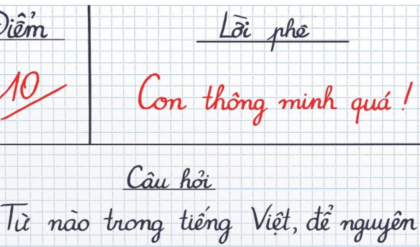 Điểm
Lời phê
10
Con thông minh quá!
Câu hỏi
Từ nào trong tiếng Việt, để nguyên